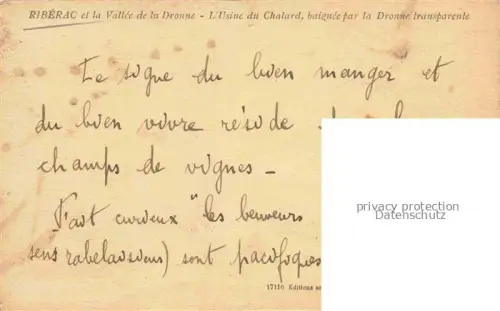 RIBÉRAC et la Vallée de la Dronne - L'Usine du Chalard, baignée par la Dronne transparente
Le signe du bien manger et
du bien vivre réside
champs de vignes -
Fait curieux "les beuveurs
sens rabelaisiens) sont pacifiques
privacy protection
Datenschutz
17110 Editions